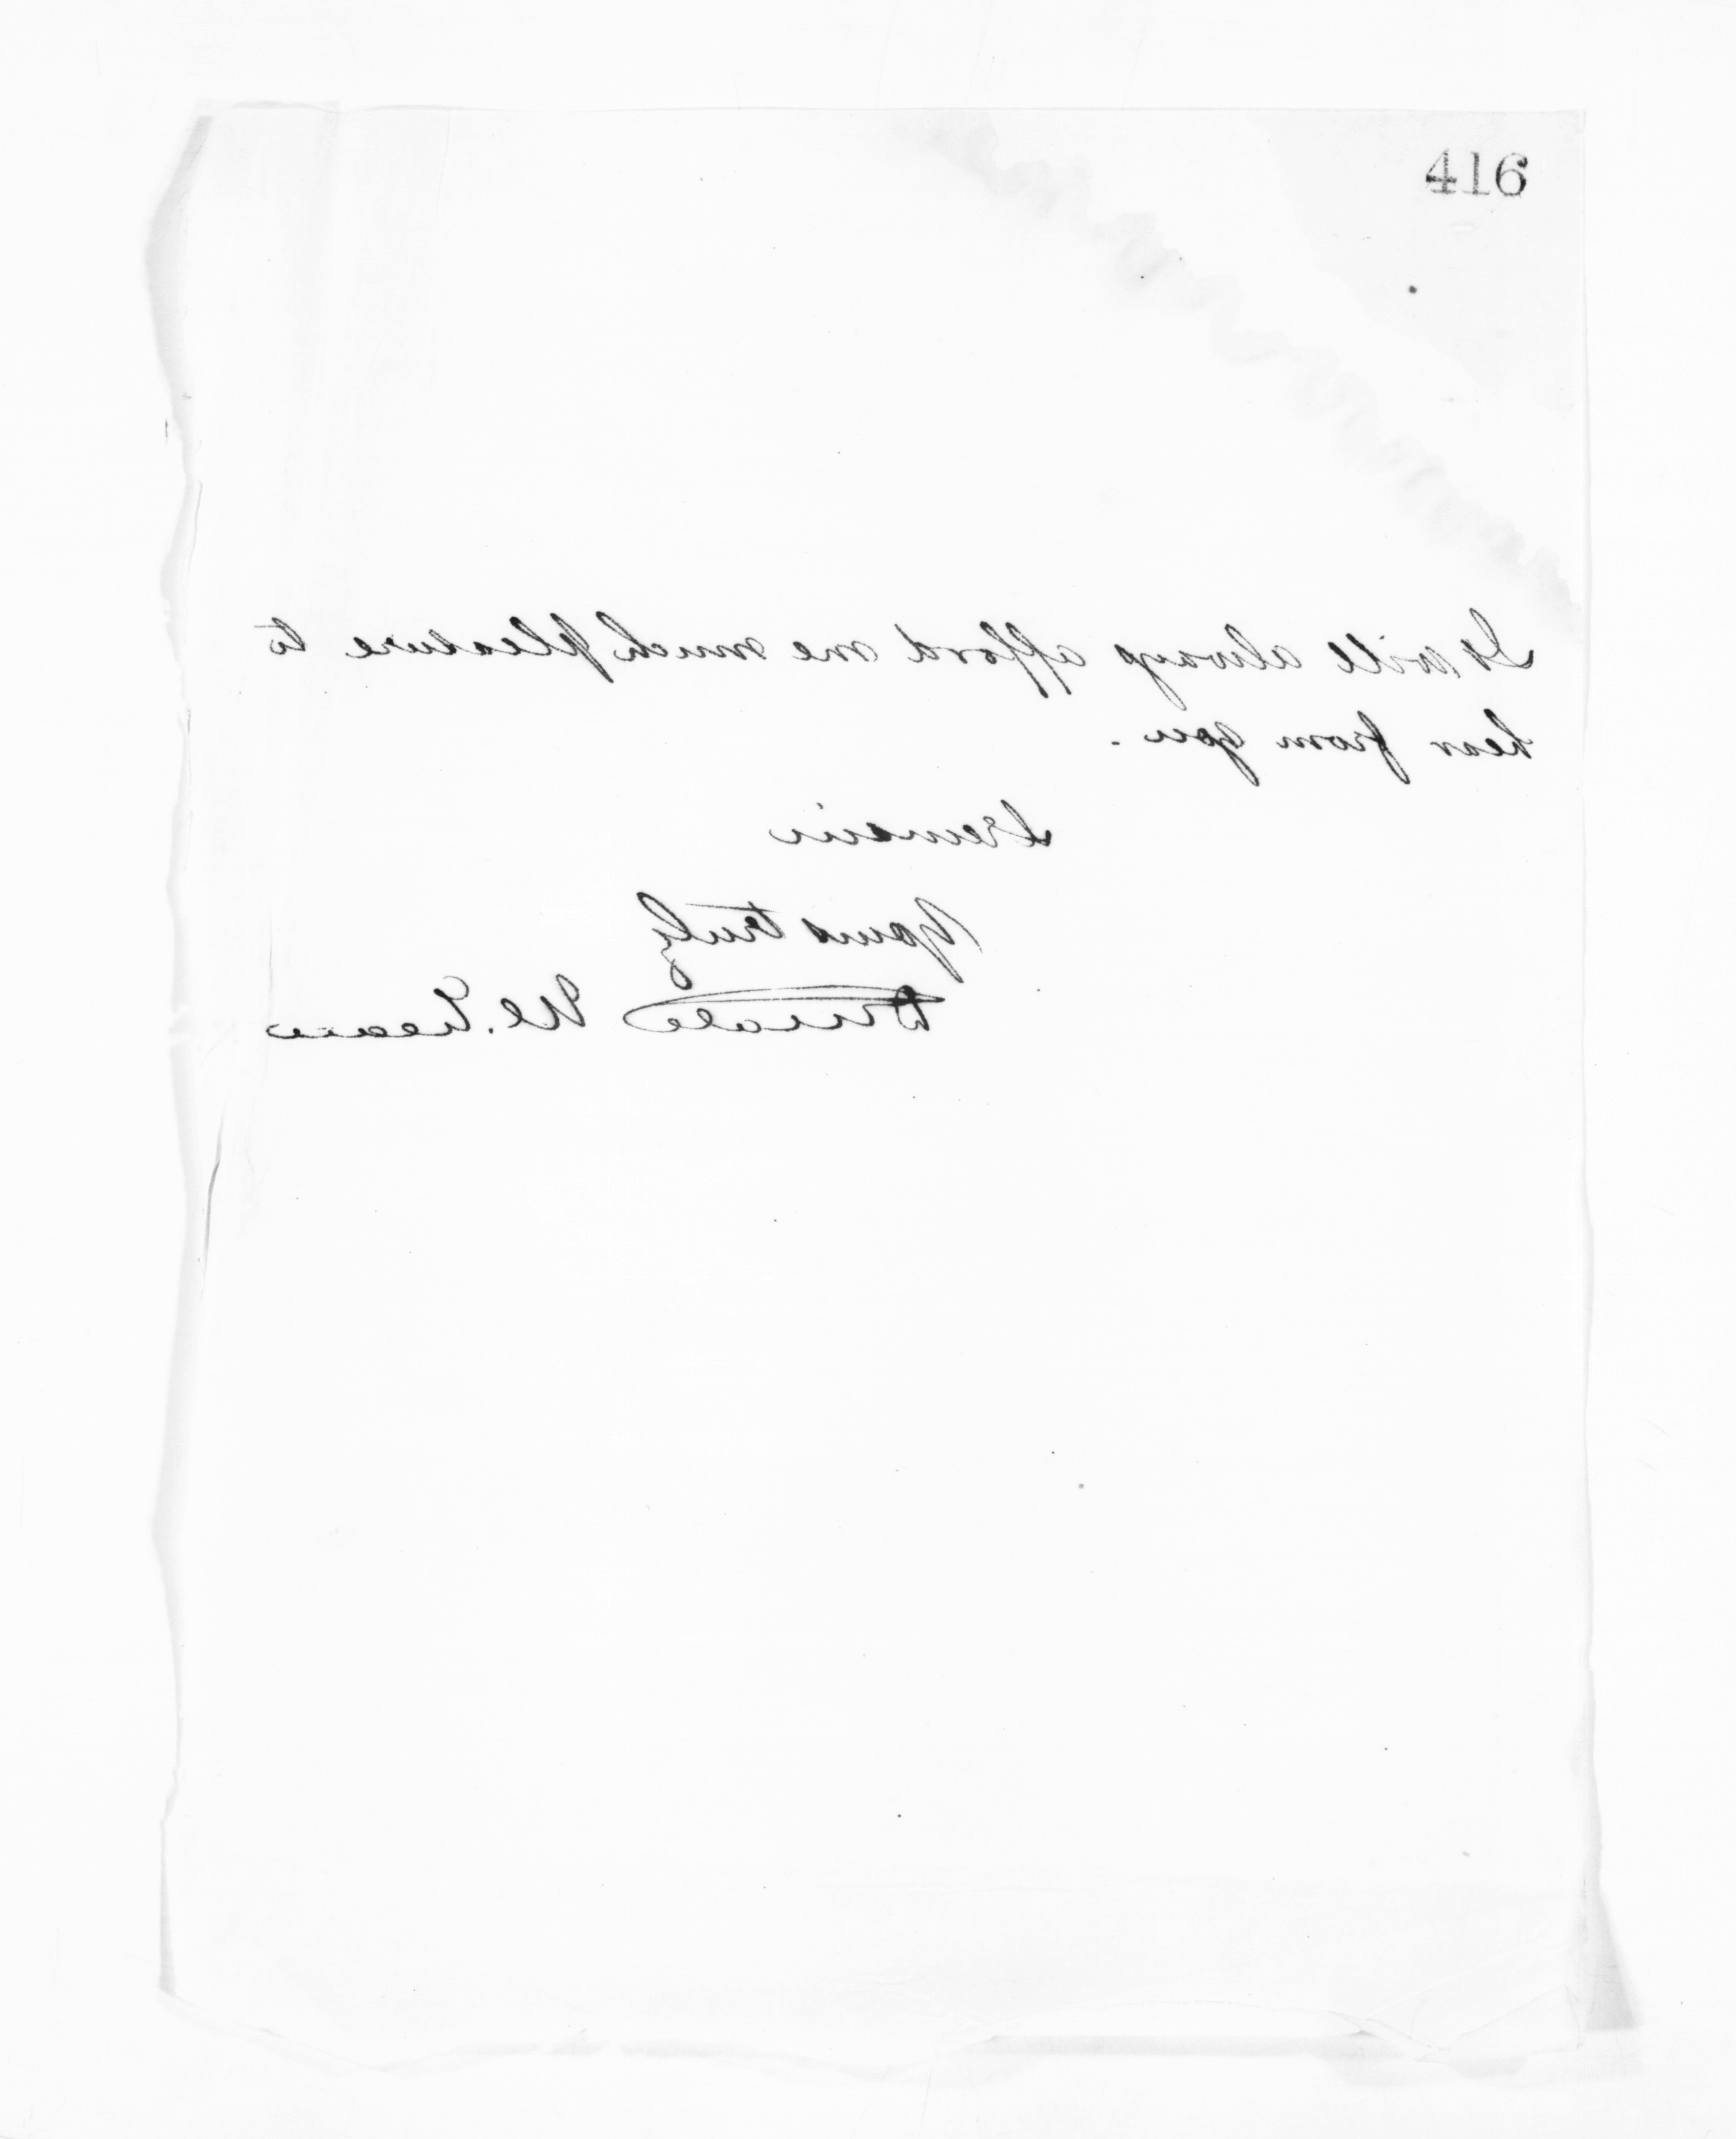 416
It will always afford me much pleasure to
hear from you.
I remain
Yours truly
Donald McLean